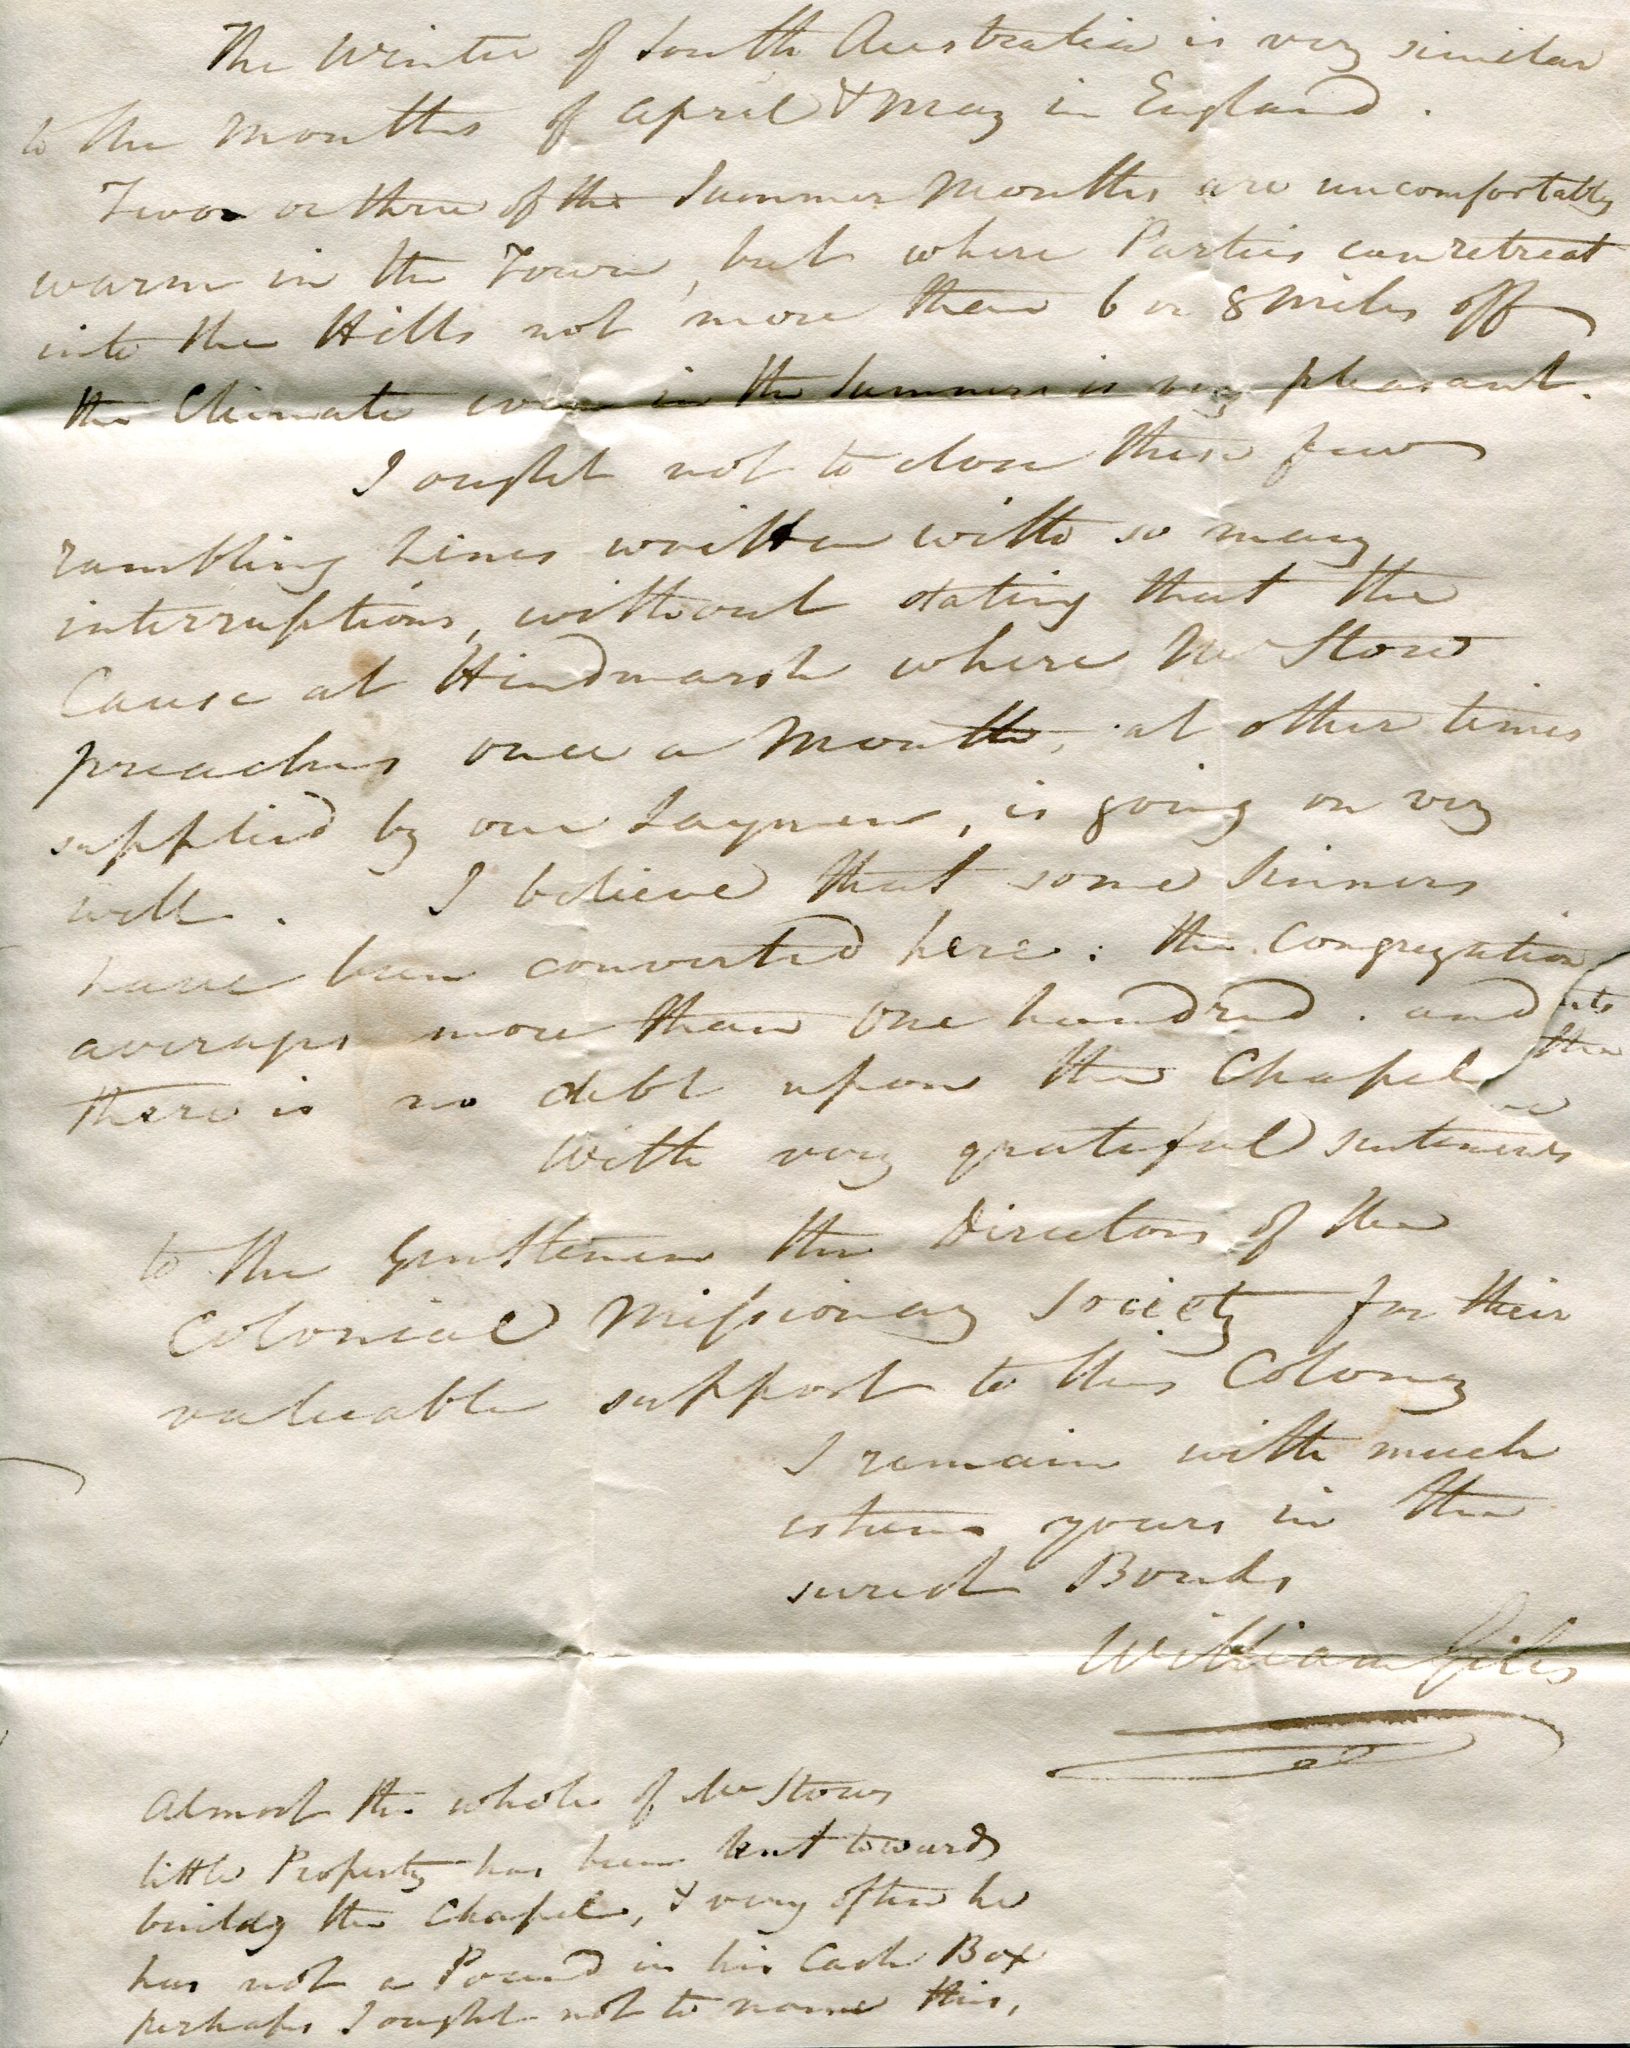 The Winter of South Australia is very similar
to the Months of April & May in England.
Two or three of the Summer Months are uncomfortably
warm in the Town, but where Parties can retreat
into the Hills not more than 6 or 8 Miles off
the Climate even in the Summer is very pleasant.
I ought not to close these few
rambling Lines written with so many
interruptions, without stating that the
Cause at Hindmarsh where Mr Stow
preaches once a Month, at other times
supplied by our Laymen, is going on very
well. I believe that some Sinners
have been converted here: the Congregation
averages more than One hundred. and
there is no debt upon the Chapel
With very grateful sentiments
to the Gentlemen the Directors of the
Colonial Missionary Society for their
valuable support to this Colony
I remain with much
esteem yours in the
surest Bonds
William Giles
Almost the whole of Mr Stows
little Property has been lent towards
buildg the Chapel, & very often he
has not a Pound in his Cash Box
perhaps I ought not to name this,